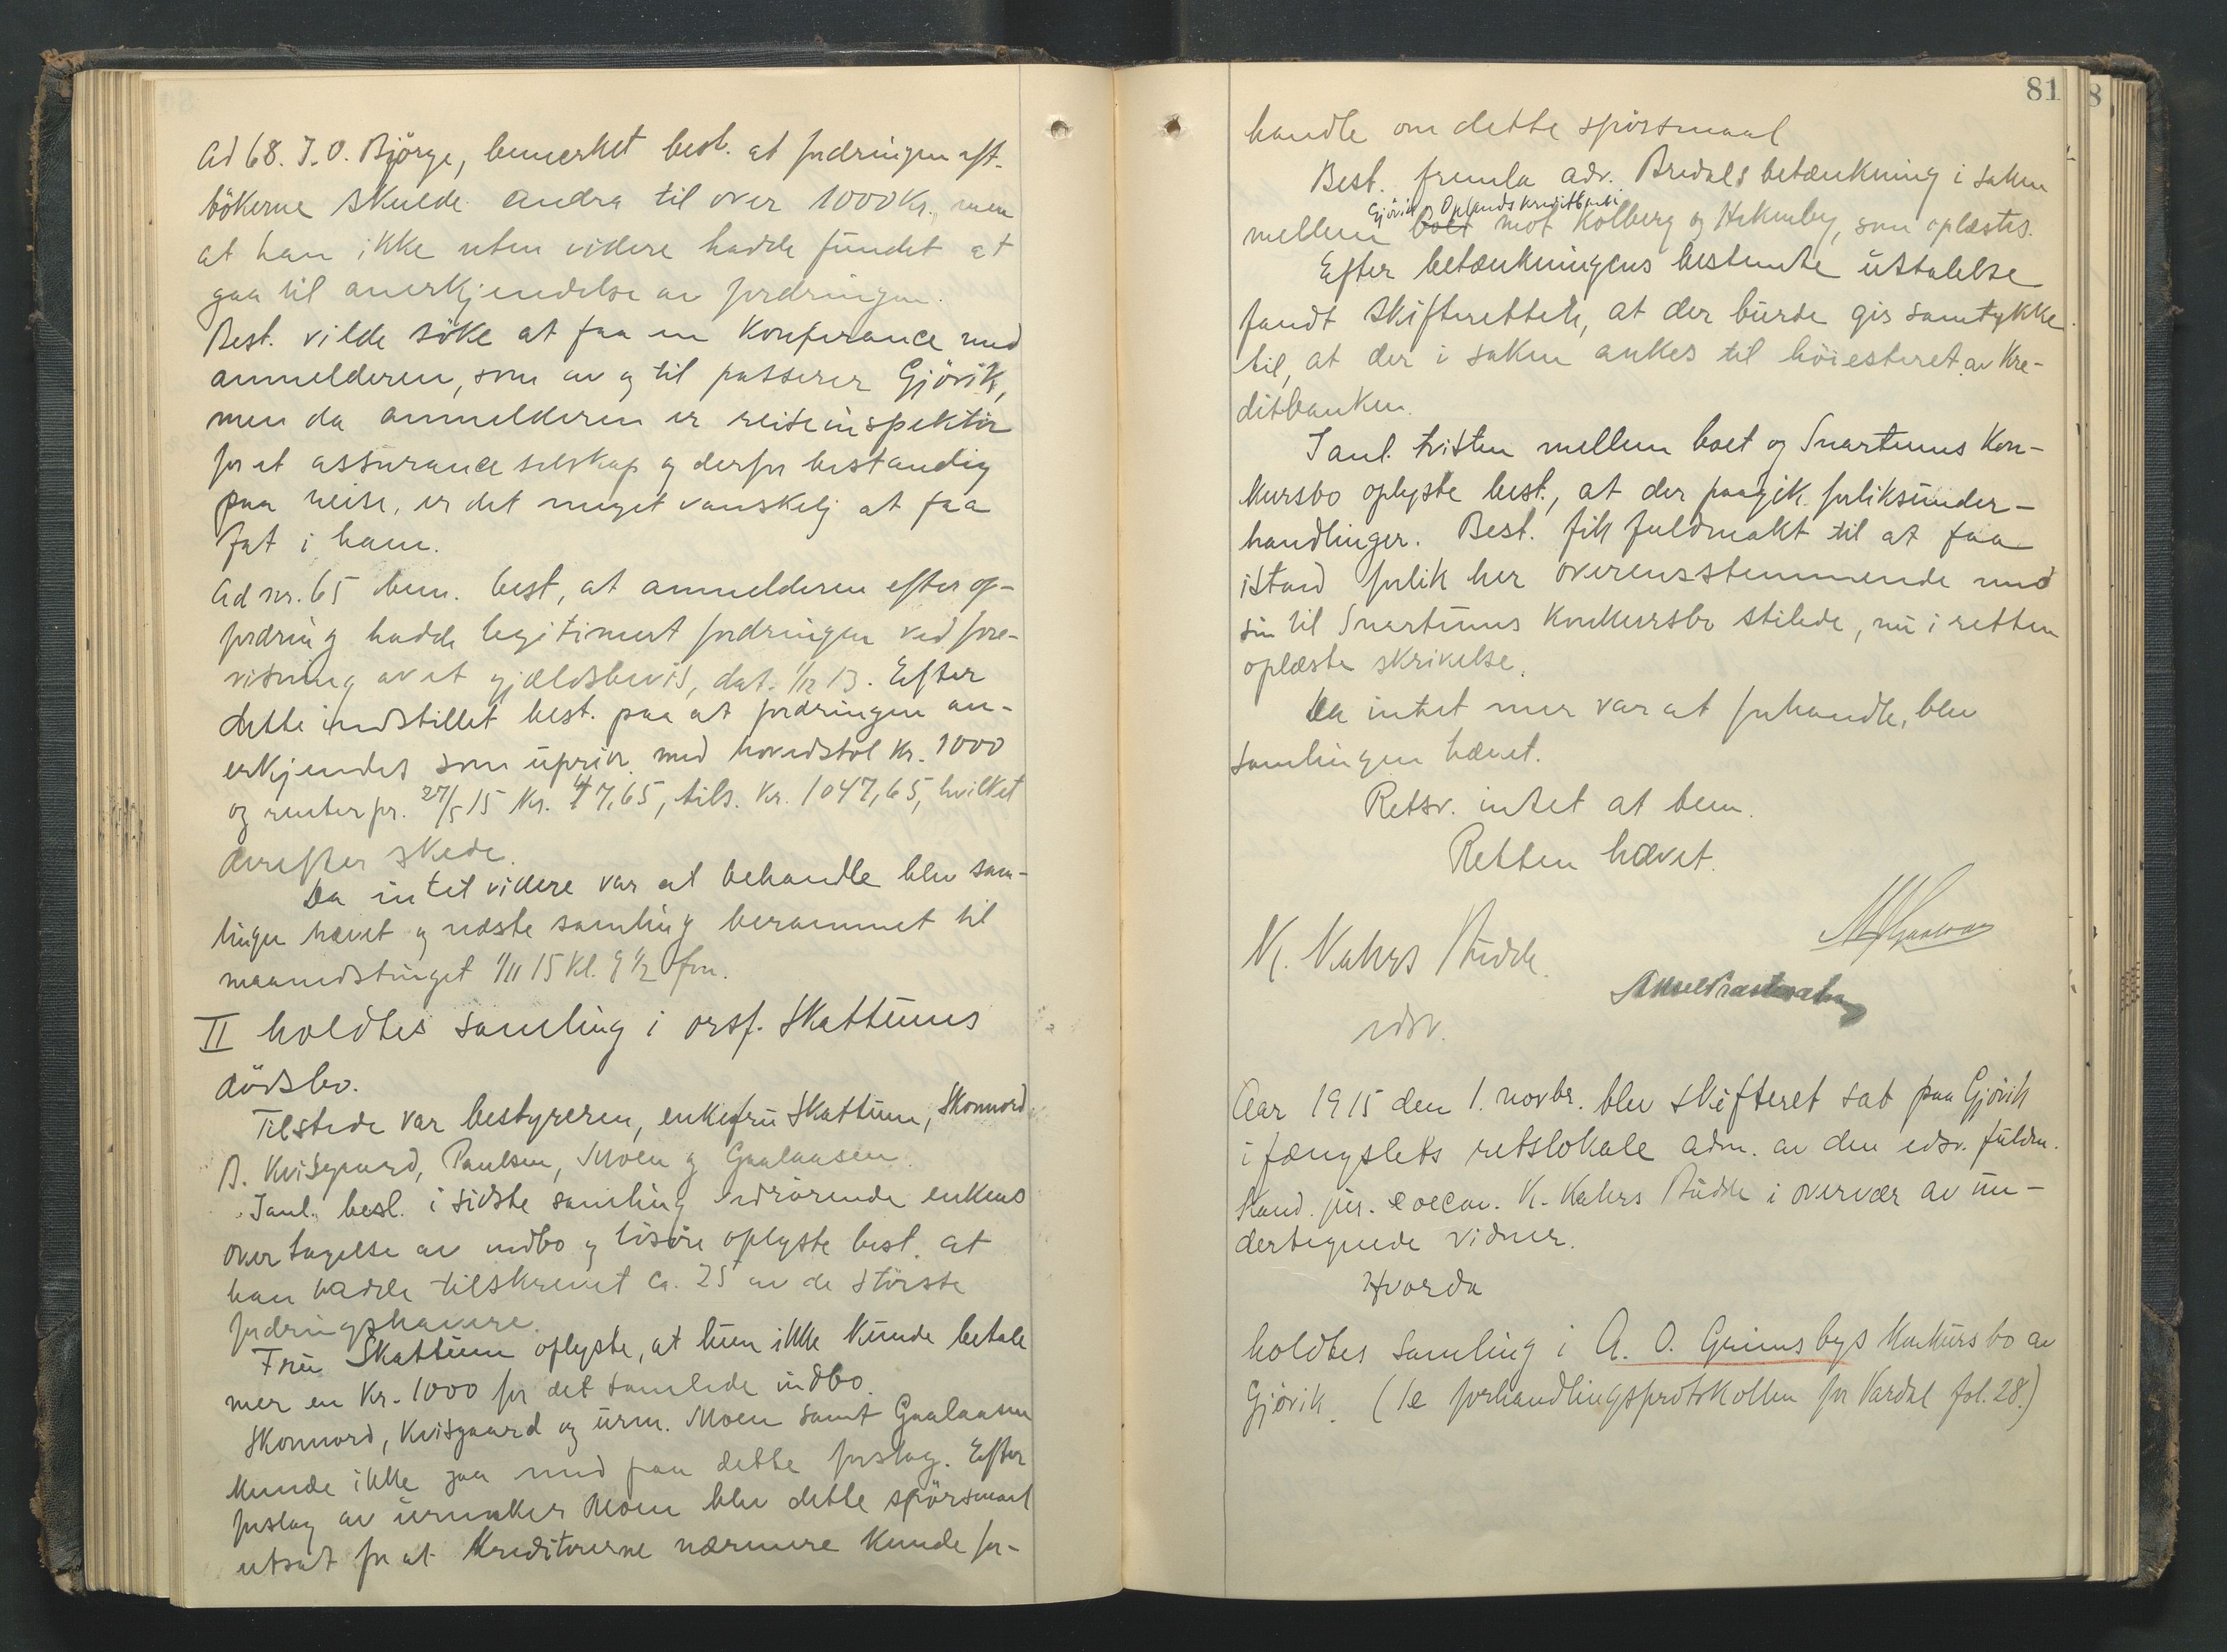 Ad 68. J. O. Björge, bemerket best. at fordringen eft.
bökerne skulde andra til over 1000 Kr., men
at han ikke uten videre hadde fundet at
gaa til anerkjendelse av fordringen.
Best. vilde söke at faa en Konferance med
anmelderen, som av og til passerer Gjövik,
men da anmelderen er reiseinspektör
for et assurance selskap og derfor bestandig
paa reise, er det meget vanskelig at faa
fat i ham.
Ad nr. 65 bem. best, at anmelderen efter op-
fordring hadde legitimert fordringen ved fore-
visning av et gjældsbevis, dat. 1/12 13. Efter
dette indstillet best. paa at fordringen an-
erkjendes som upriv. med hovedstol Kr. 1000
og renter pr. 27/5 15 Kr. 47,65, tils. Kr. 1047,65, hvilket
derefter skede.
Da intet videre var at behandle blev sam-
lingen hævet og næste samling berammet til
maanedstinget 1/11 15 Kl. 9 1/2 fm.
II holdtes samling i orsf. Skattums
dödsbo.
Tilstede var bestyreren, enkefru Skattum, Skonnord
B. Kvisgaard, Paulsen, Moen og Gaalaasen.
Janl. besl. i sidste samling vedrörende enkens
overtagelse av indbo og lösöre oplyste best. at
han hadde tilskrevet ca. 25 av de störste
fordringshavere.
Fru Skattum oplyste, at hun ikke Kunde betale
mer en Kr. 1000 for det samlede indbo.
Skonnord, Kvisgaard og urm. Moen samt Gaalaasen
Kunde ikke gaa med paa dette forslag. Efter
forslag av urmaker Moen blev dette spörsmaal
utsat for at Kreditorerne nærmere Kunde for-
81
handle om dette spörsmaal
Best. fremla adv. Bredals betænkning i saken
Gjövik og Oplands Kreditbank
mellem boet mot Kolberg og Hekneby, som oplæstes.
Efter betænkningens bestemte uttalelse
fandt skifteretten, at der burde gis samtykke
til, at der i saken ankes til höiesteret av Kre-
ditbanken.
Janl. tvisten mellem boet og Svartums Kon-
kursbo oplyste best., at der paagik forliksunder-
handlinger. Best. fik fuldmakt til at faa
istand forlik her overensstemmende med
sin til Svartums Konkursbo stilede, nu i retten
oplæste skrivelse.
Da intet mer var at forhandle, blev
samlingen hævet.
Retsv. intet at bem.
Retten hævet.
K. Kahrs Budde.
edsv.
Aar 1915 den 1. novbr. blev skifteret sat paa Gjövik
i fængslets retslokale adm. av den edsv. fuldm.
Kand. jur. & oecon. K. Kahrs Budde i overvær av un-
dertegnede vidner.
Hvorda
holdtes samling i A. O. Grimsbys Konkursbo av
Gjövik. (se forhandlingsprotokollen for Vardal fol. 28.)